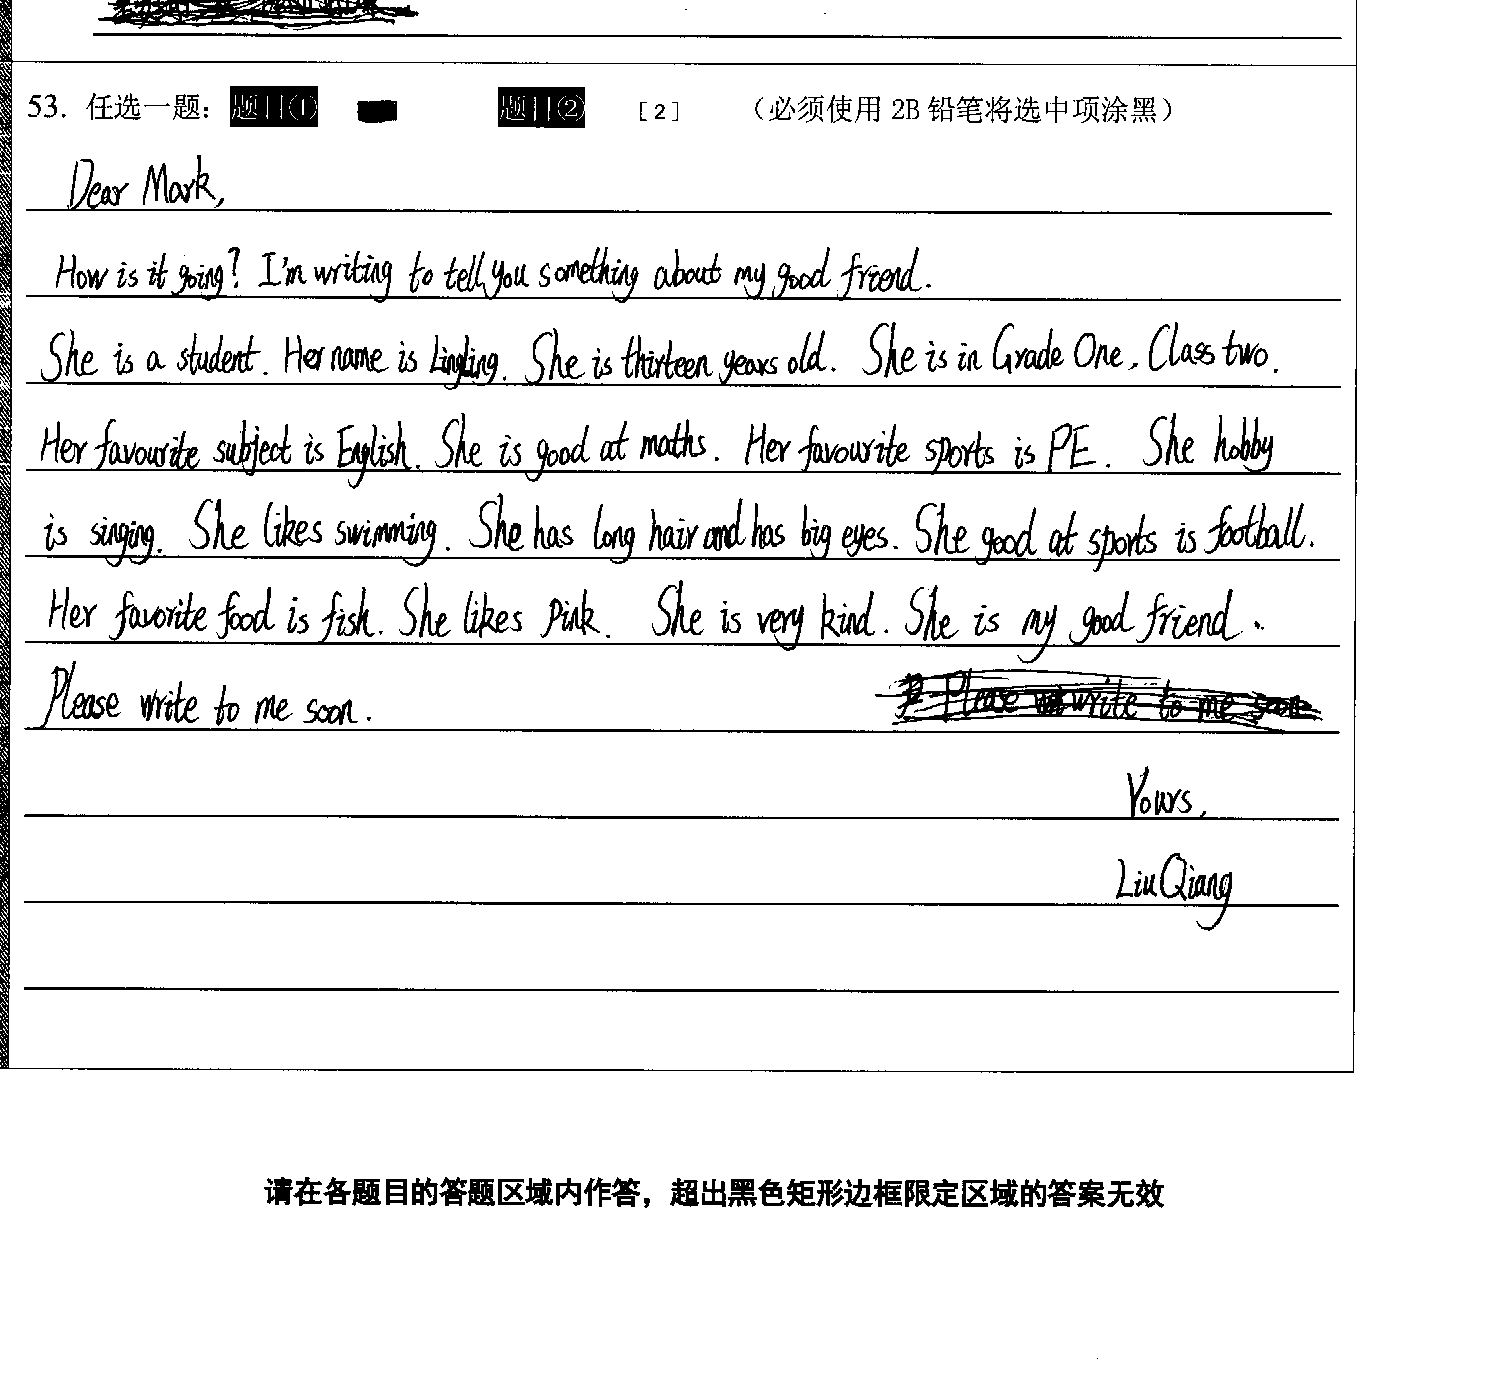 53. 任选一题：题目① 题目② [2] （必须使用 2B 铅笔将选中项涂黑）
Dear Mark,
How is it going? I'm writing to tell you something about my good friend.
She is a student. Her name is Lingling. She is thirteen years old. She is in Grade One, Class two.
Her favourite subject is English. She is good at maths. Her favourite sports is PE. She hobby
is singing. She likes swimming. She has long hair and has big eyes. She good at sports is football.
Her favorite food is fish. She likes pink. She is very kind. She is my good friend.
Please write to me soon.
Yours,
Liu Qiang
请在各题目的答题区域内作答，超出黑色矩形边框限定区域的答案无效